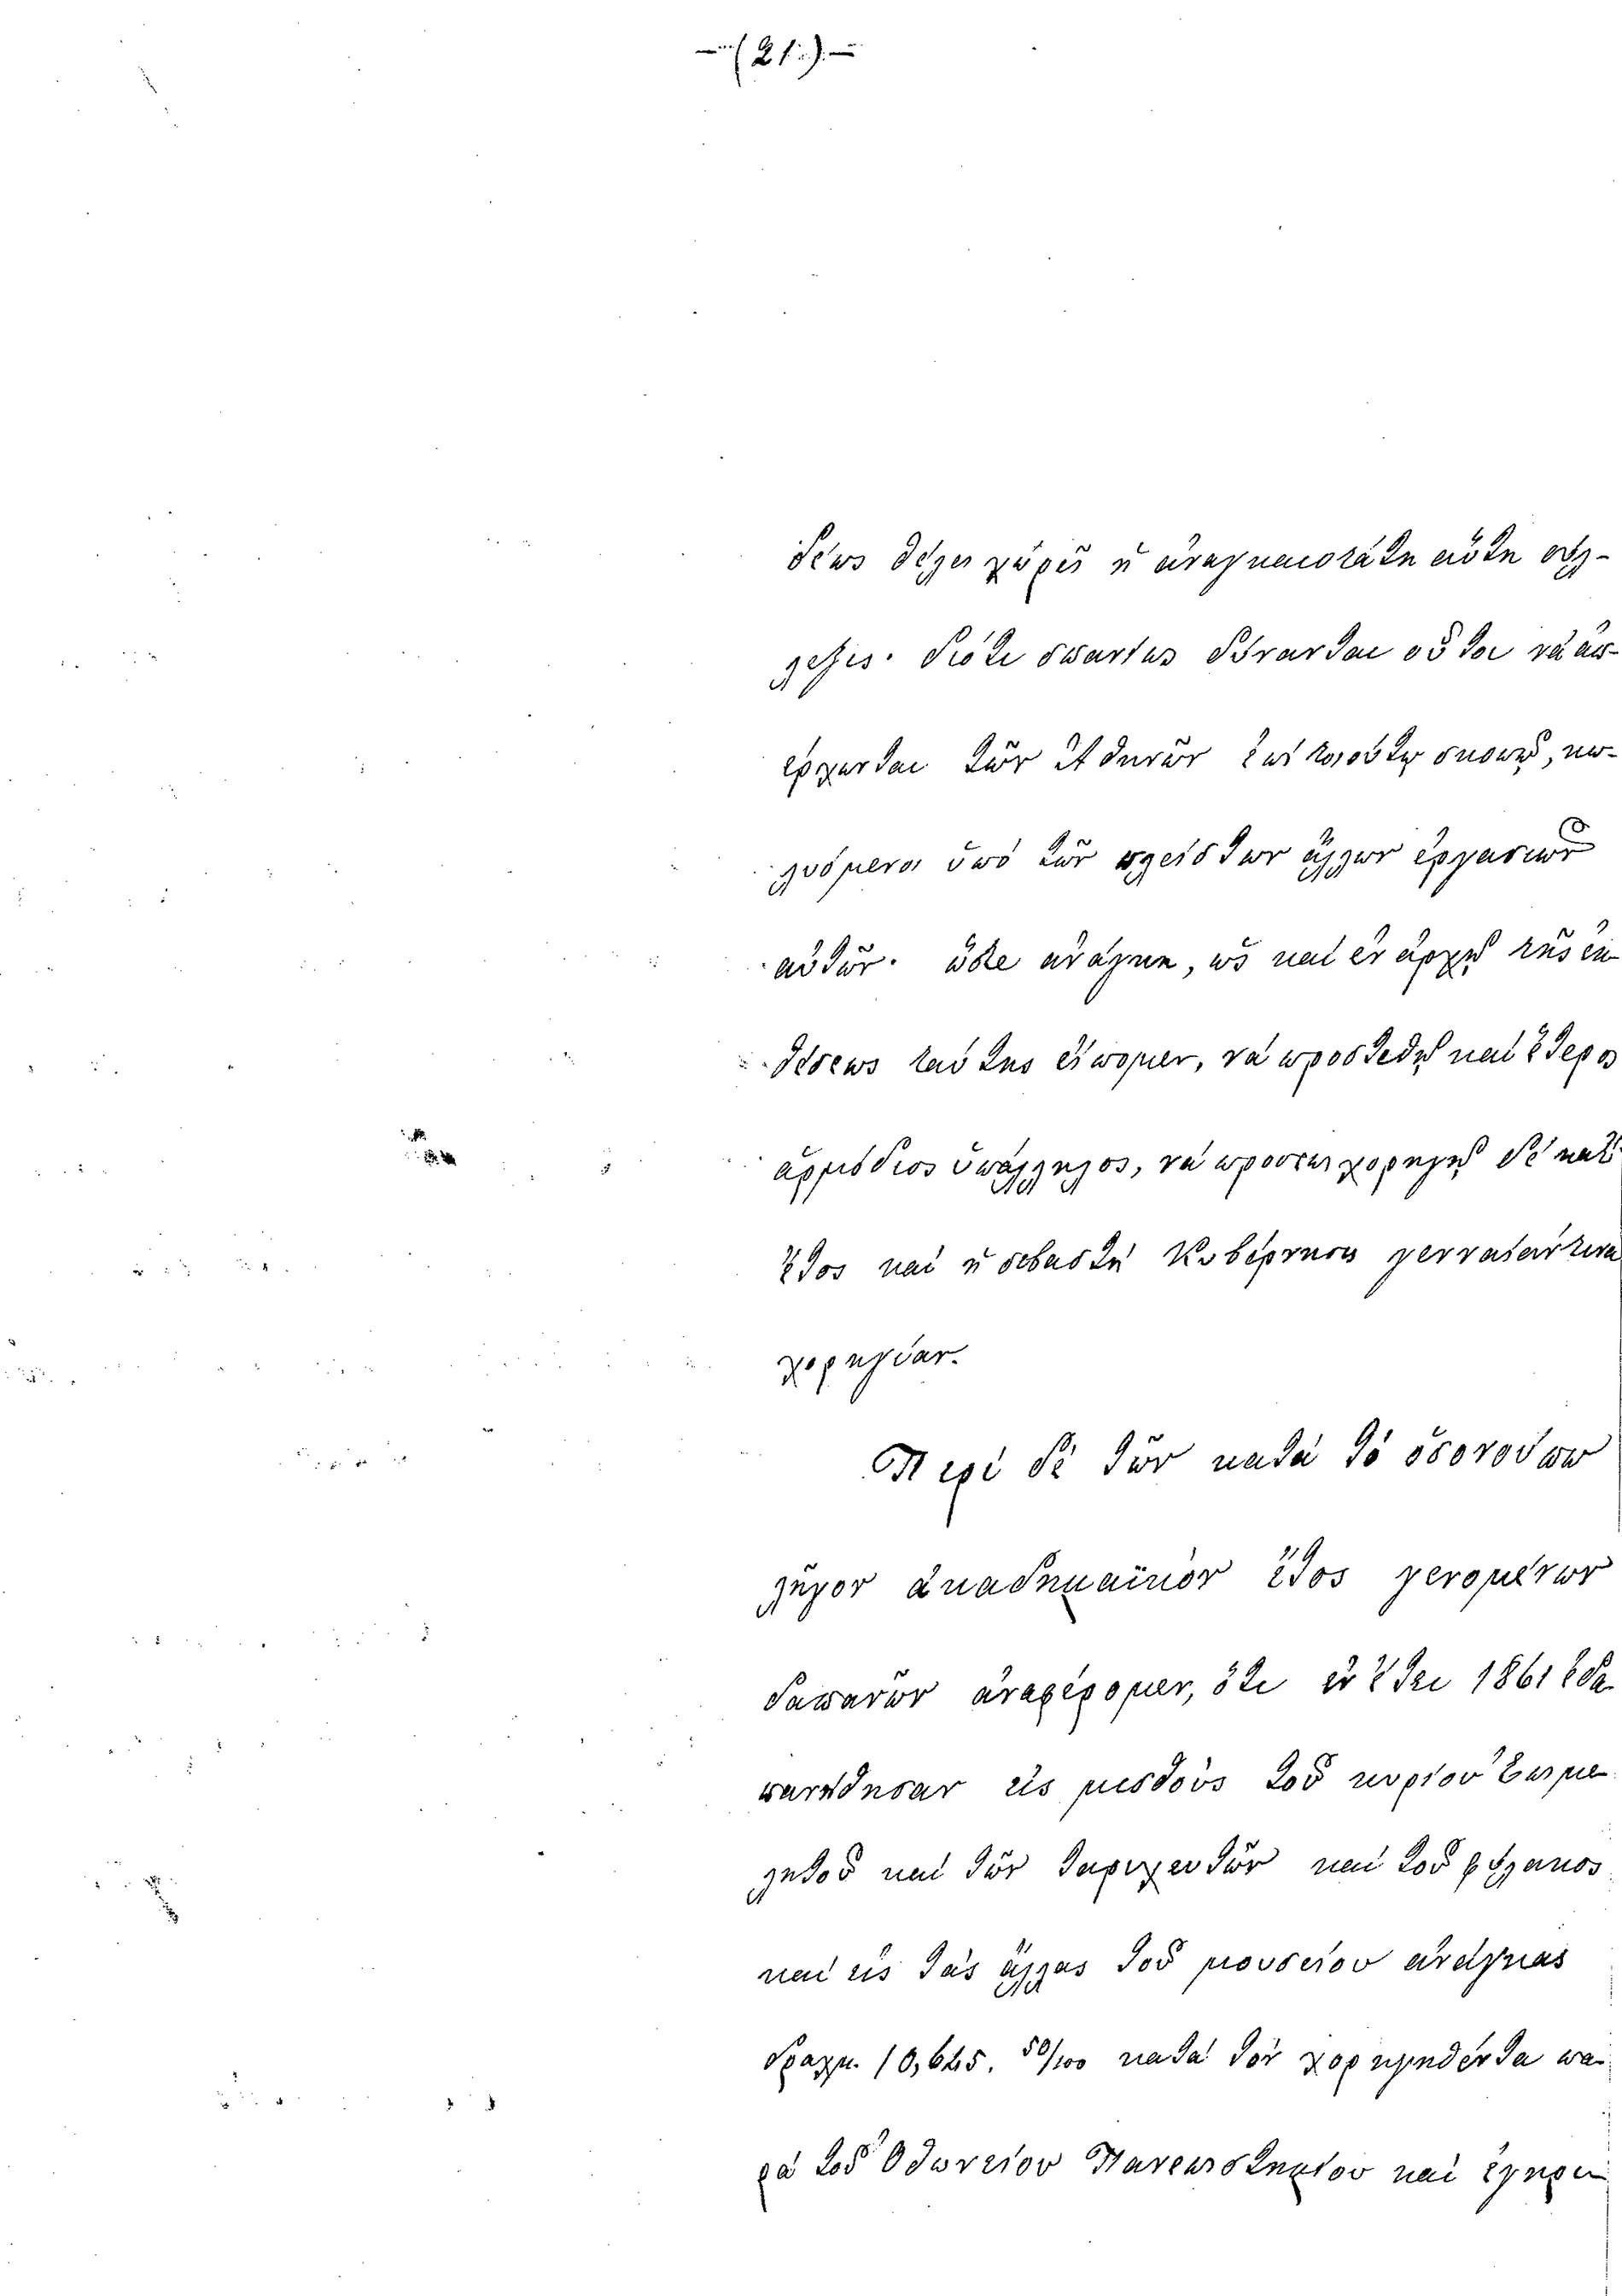 —(21.)—
σεως θέλει χύσει ἡ ἀναγκαιοτάτη αὕτη σύλ-
λεξις. διότι σπανίως δύνανται οὗτοι νὰ ἀν-
έρχωνται τῶν ἐξ Ἀθηνῶν
λυόμενοι ὑπὸ τῶν πλείστων ἄλλων ἐργασιῶν
αὐτῶν. ὥστε ἀνάγκη, ὡς καὶ ἐν ἀρχῇ τῆς ἐκ-
θέσεως ταύτης εἴπομεν, νὰ προστεθῇ καὶ ἕτερος
ἁρμόδιος ὑπάλληλος, νὰ προσεπιχορηγῇ δὲ κατ'
ἔτος καὶ ἡ σεβαστὴ Κυβέρνησις γενναίαν τινα
χορηγίαν.
Περὶ δὲ τῶν κατὰ τὸ ὅσον οὔπω
λῆγον ἀκαδημαϊκὸν ἔτος γενομένων
δαπανῶν ἀναφέρομεν, ὅτι ἐν ἔτει 1861 ἐδα-
πανήθησαν εἰς μισθοὺς τοῦ κυρίου Ἐπιμε-
λητοῦ καὶ τῶν ταριχευτῶν καὶ τοῦ φύλακος
καὶ εἰς τὰς ἄλλας τοῦ μουσείου ἀνάγκας
δραχμ. 10,645. 50/100 κατὰ τὸν χορηγηθέντα πα-
ρὰ τοῦ Ὀθωνείου Πανεπιστημίου καὶ ἐγκρι